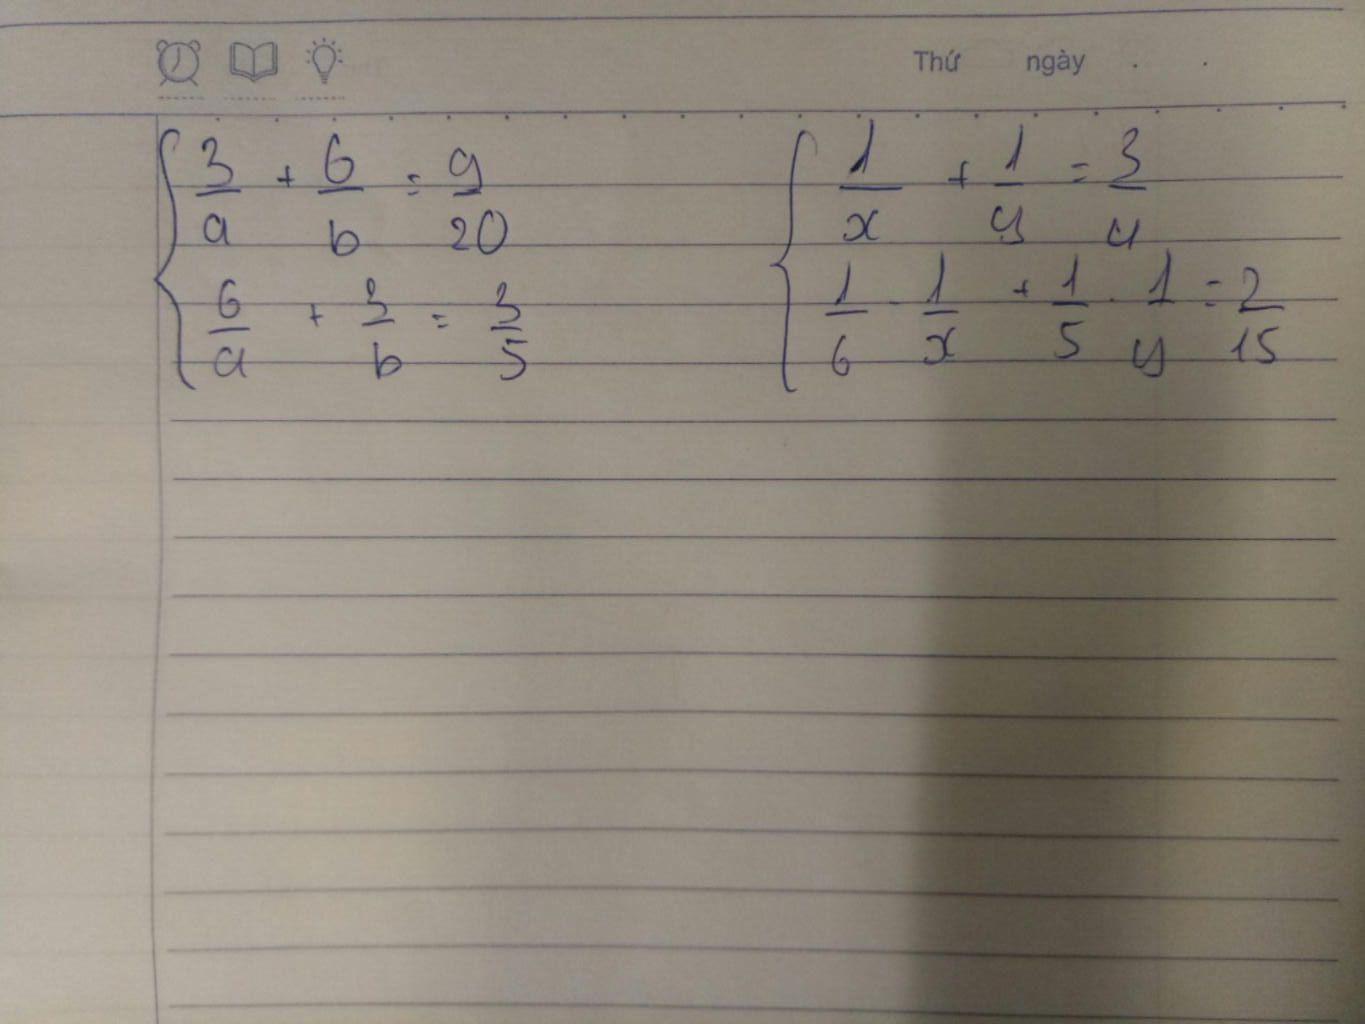 Thứ ngày . .
{ 3/a + 6/b = 9/20
6/a + 3/b = 3/5
{ 1/x + 1/y = 3/4
1/6 . 1/x + 1/5 . 1/y = 2/15